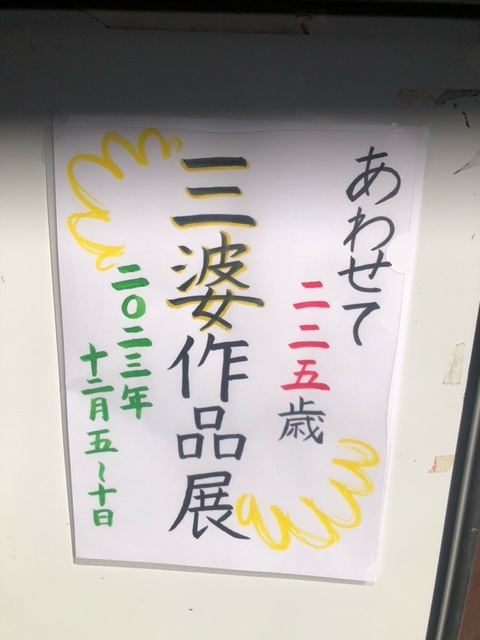 あわせて
二二五歳
三婆作品展
二〇二三年
十二月五〜十日